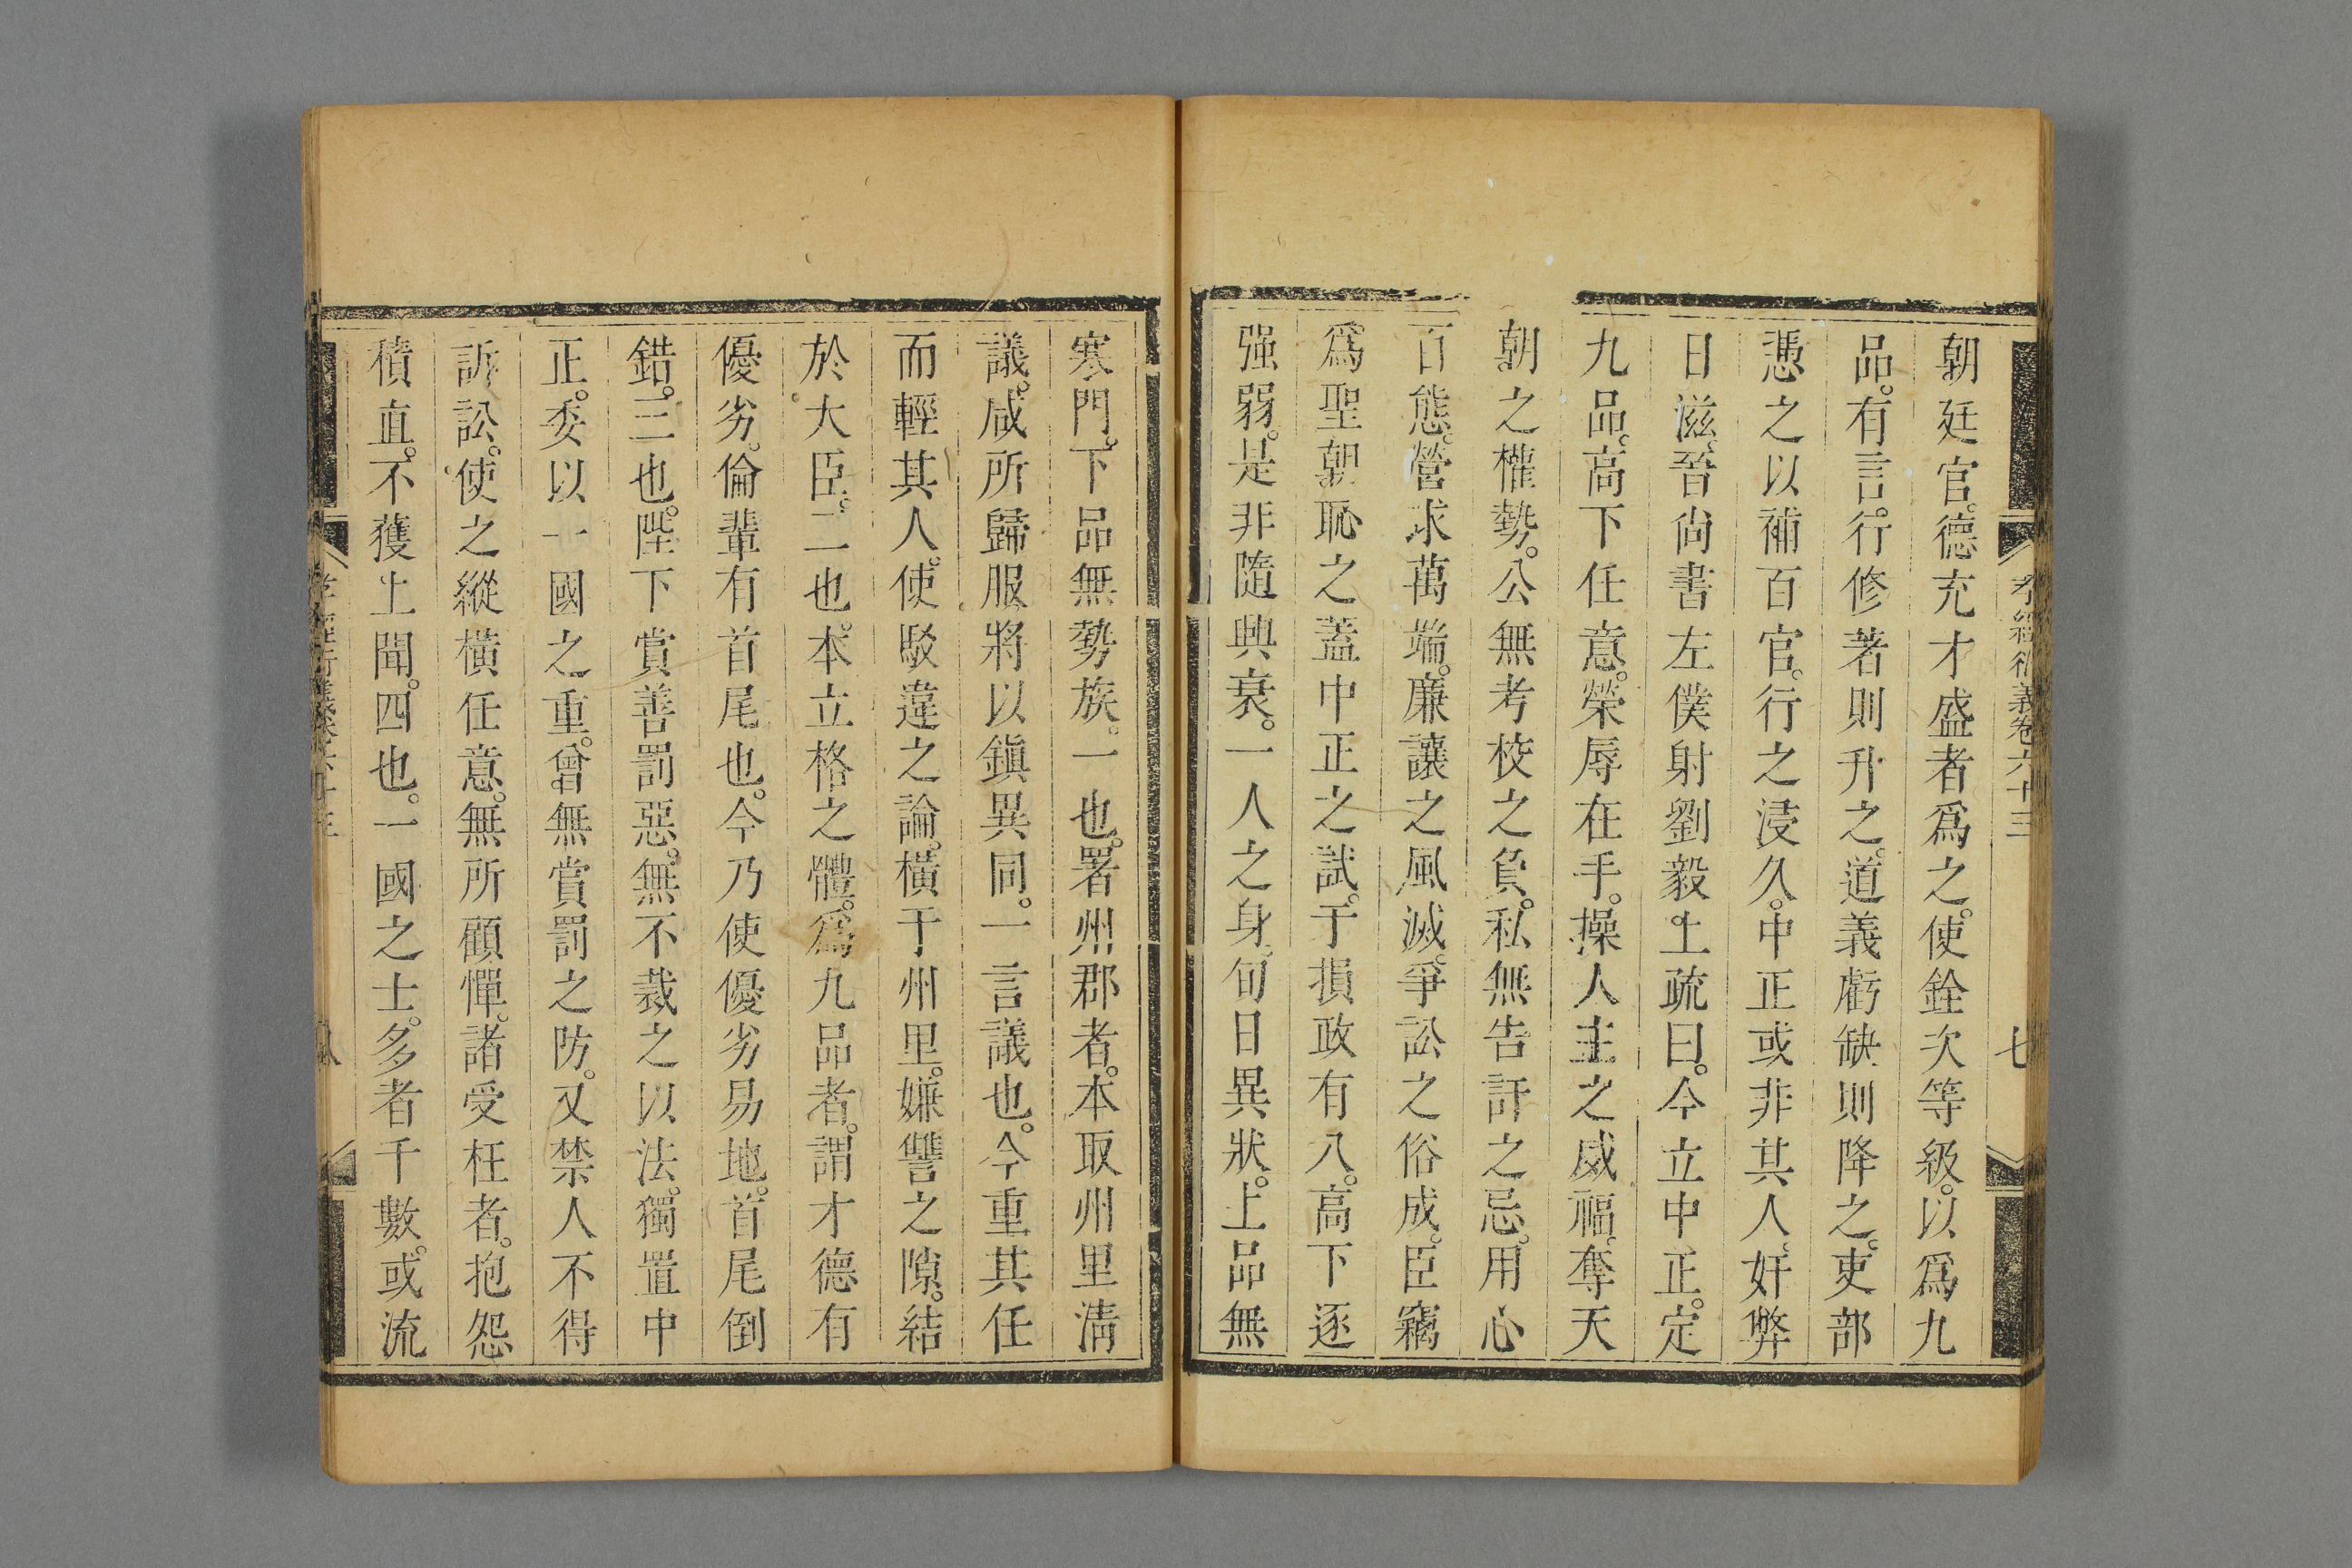 孝經衍義卷六十三
七
朝廷官。德充才盛者爲之。使銓次等級。以爲九
品。有言。行修著則升之。道義虧缺則降之。吏部
憑之以補百官。行之浸久。中正或非其人。奸弊
日滋。晉尚書左僕射劉毅上疏曰。今立中正。定
九品。高下任意。榮辱在手。操人主之威福。奪天
朝之權勢。公無考校之負。私無告訐之忌。用心
百態。營求萬端。廉讓之風滅。爭訟之俗成。臣竊
爲聖朝恥之。蓋中正之試。于損政有八。高下逐
强弱。是非隨興衰。一人之身。旬日異狀。上品無
寒門。下品無勢族。一也。署州郡者。本取州里淸
議。咸所歸服。將以鎭異同。一言議也。今重其任
而輕其人。使駁違之論。橫于州里。嫌讐之隙。結
於大臣。二也。本立格之體。爲九品者。謂才德有
優劣。倫輩有首尾也。今乃使優劣易地。首尾倒
錯。三也。陛下賞善罰惡。無不裁之以法。獨置中
正。委以一國之重。曾無賞罰之防。又禁人不得
訴訟。使之縱橫任意。無所顧憚。諸受枉者。抱怨
積直。不獲上聞。四也。一國之士。多者千數。或流
孝經衍義卷六十三
八